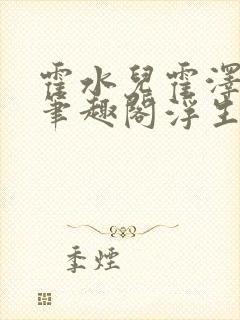 霍水兒霍澤
筆趣閣浮生
季煙